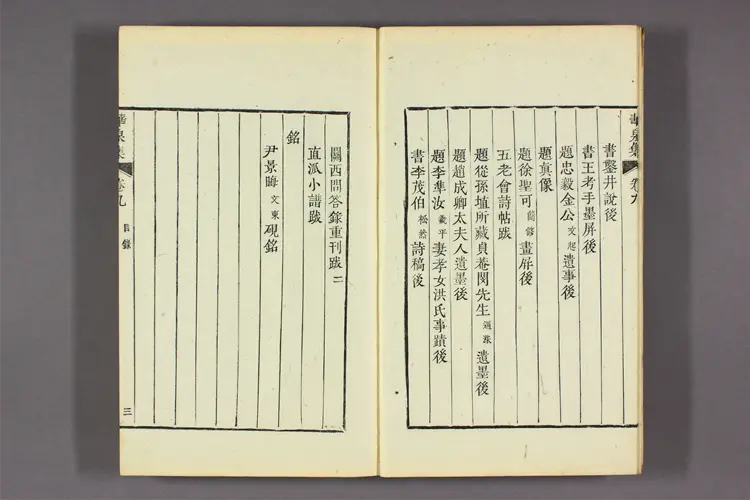 書鑿井說後
書王考手墨屏後
題忠毅金公文起遺事後
題真像
題徐聖可畫屏後
五老會詩帖跋
題從孫埴所藏貞菴閔先生遇洙遺墨後
題趙成卿太夫人遺墨後
題李準汝羲平妻孝女洪氏事蹟後
書李茂伯松然詩稿後
泉集
卷九
關西問答錄重刊跋二
直派小譜跋
銘
尹景晦文東硯銘
泉集 卷九 目錄
三